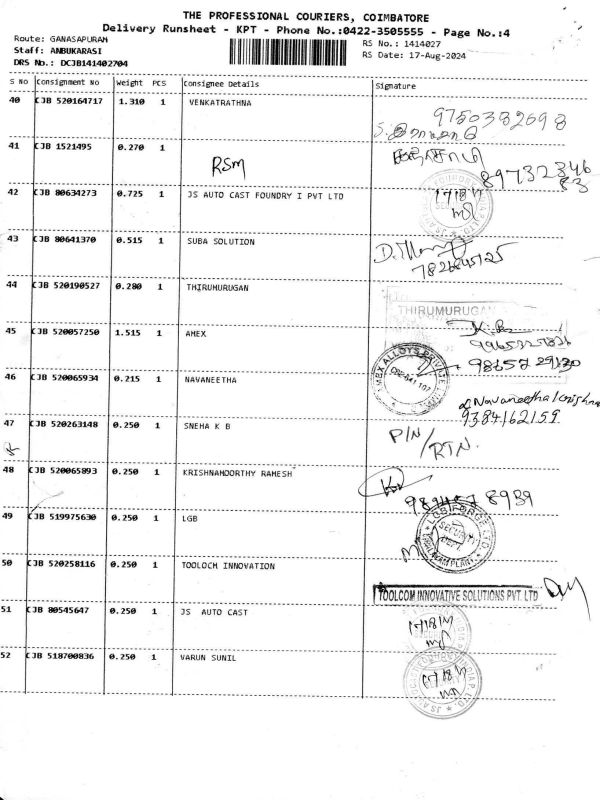 THE PROFESSIONAL COURIERS, COIMBATORE
Delivery Runsheet - KPT - Phone No.:0422-3505555 - Page No.:4
Route: GANASAPURAM
RS No.: 1414027
Staff: ANBUKARASI
RS Date: 17-Aug-2024
DRS No.: DCJB141402704
S No Consignment No Weight PCS Consignee Details Signature
40 CJB 520164717 1.310 1 VENKATRATHNA
9750382698
41 CJB 1521495 0.270 1
RSM
8973234683
42 CJB 80634273 0.725 1 JS AUTO CAST FOUNDRY I PVT LTD
17/8/24
43 CJB 80641370 0.515 1 SUBA SOLUTION
44 CJB 520190527 0.280 1 THIRUMURUGAN
THIRUMURUGAN
45 CJB 520057250 1.515 1 AMEX
AMEX ALLOYS PRIVATE
46 CJB 520065934 0.215 1 NAVANEETHA
Navaneethakrishnan
9384162159
47 CJB 520263148 0.250 1 SNEHA K B
P/N/
RTN.
48 CJB 520065893 0.250 1 KRISHNAMOORTHY RAMESH
49 CJB 519975630 0.250 1 LGB
LGB FORGE LTD.
SECURITY
DEPT
50 CJB 520258116 0.250 1 TOOLOCM INNOVATION
TOOLCOM INNOVATIVE SOLUTIONS PVT. LTD
51 CJB 80545647 0.250 1 JS AUTO CAST
17/8/24
52 CJB 518700836 0.250 1 VARUN SUNIL
17/8/24